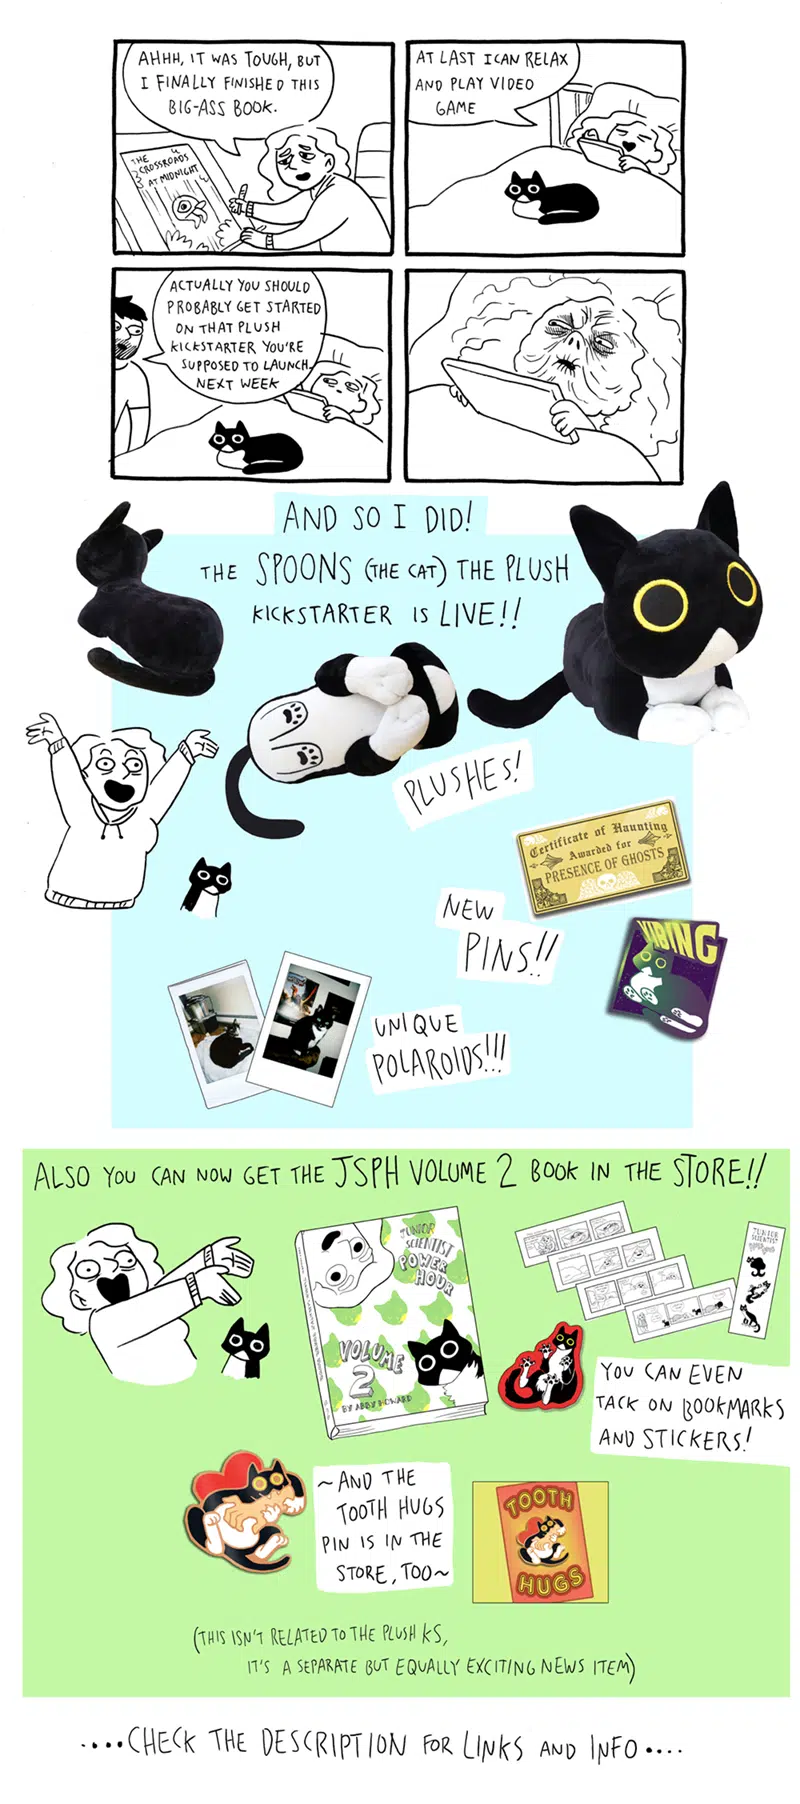 AHHH, IT WAS TOUGH, BUT
I FINALLY FINISHED THIS
BIG-ASS BOOK.
THE
CROSSROADS
AT MIDNIGHT
AT LAST I CAN RELAX
AND PLAY VIDEO
GAME
ACTUALLY YOU SHOULD
PROBABLY GET STARTED
ON THAT PLUSH
KICKSTARTER YOU'RE
SUPPOSED TO LAUNCH
NEXT WEEK
AND SO I DID!
THE SPOONS (THE CAT) THE PLUSH
KICKSTARTER IS LIVE!!
PLUSHES!
Certificate of Haunting
Awarded for
PRESENCE OF GHOSTS
NEW
PINS!!
VIBING
UNIQUE
POLAROIDS!!!
ALSO YOU CAN NOW GET THE JSPH VOLUME 2 BOOK IN THE STORE!!
JUNIOR
SCIENTIST
POWER
HOUR
VOLUME
2
BY ABBY HOWARD
JUNIOR
SCIENTIST
YOU CAN EVEN
TACK ON BOOKMARKS
AND STICKERS!
~AND THE
TOOTH HUGS
PIN IS IN THE
STORE, TOO~
TOOTH
HUGS
(THIS ISN'T RELATED TO THE PLUSH KS,
IT'S A SEPARATE BUT EQUALLY EXCITING NEWS ITEM)
....CHECK THE DESCRIPTION FOR LINKS AND INFO....